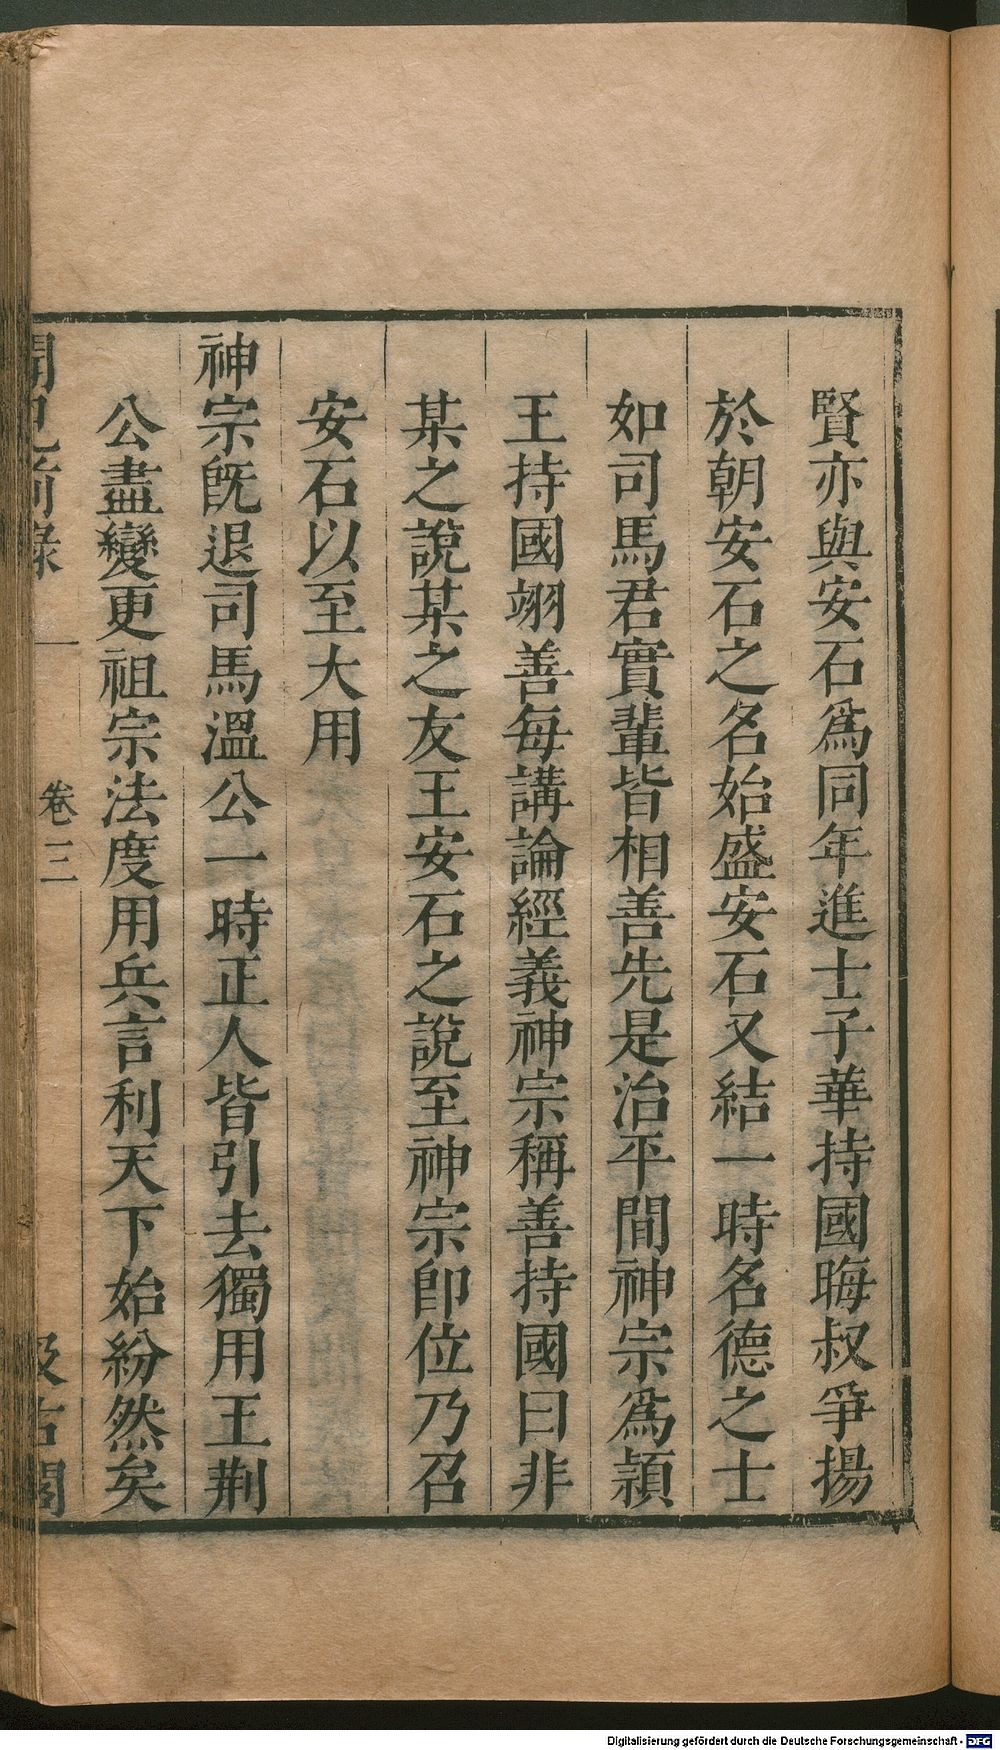 賢亦與安石爲同年進士子華持國晦叔爭揚
於朝安石之名始盛安石又結一時名德之士
如司馬君實輩皆相善先是治平間神宗爲頴
王持國翊善每講論經義神宗稱善持國曰非
某之說某之友王安石之說至神宗卽位乃召
安石以至大用
神宗旣退司馬溫公一時正人皆引去獨用王荆
公盡變更祖宗法度用兵言利天下始紛然矣
聞見前錄 卷三 汲古閣
Digitalisierung gefördert durch die Deutsche Forschungsgemeinschaft - DFG